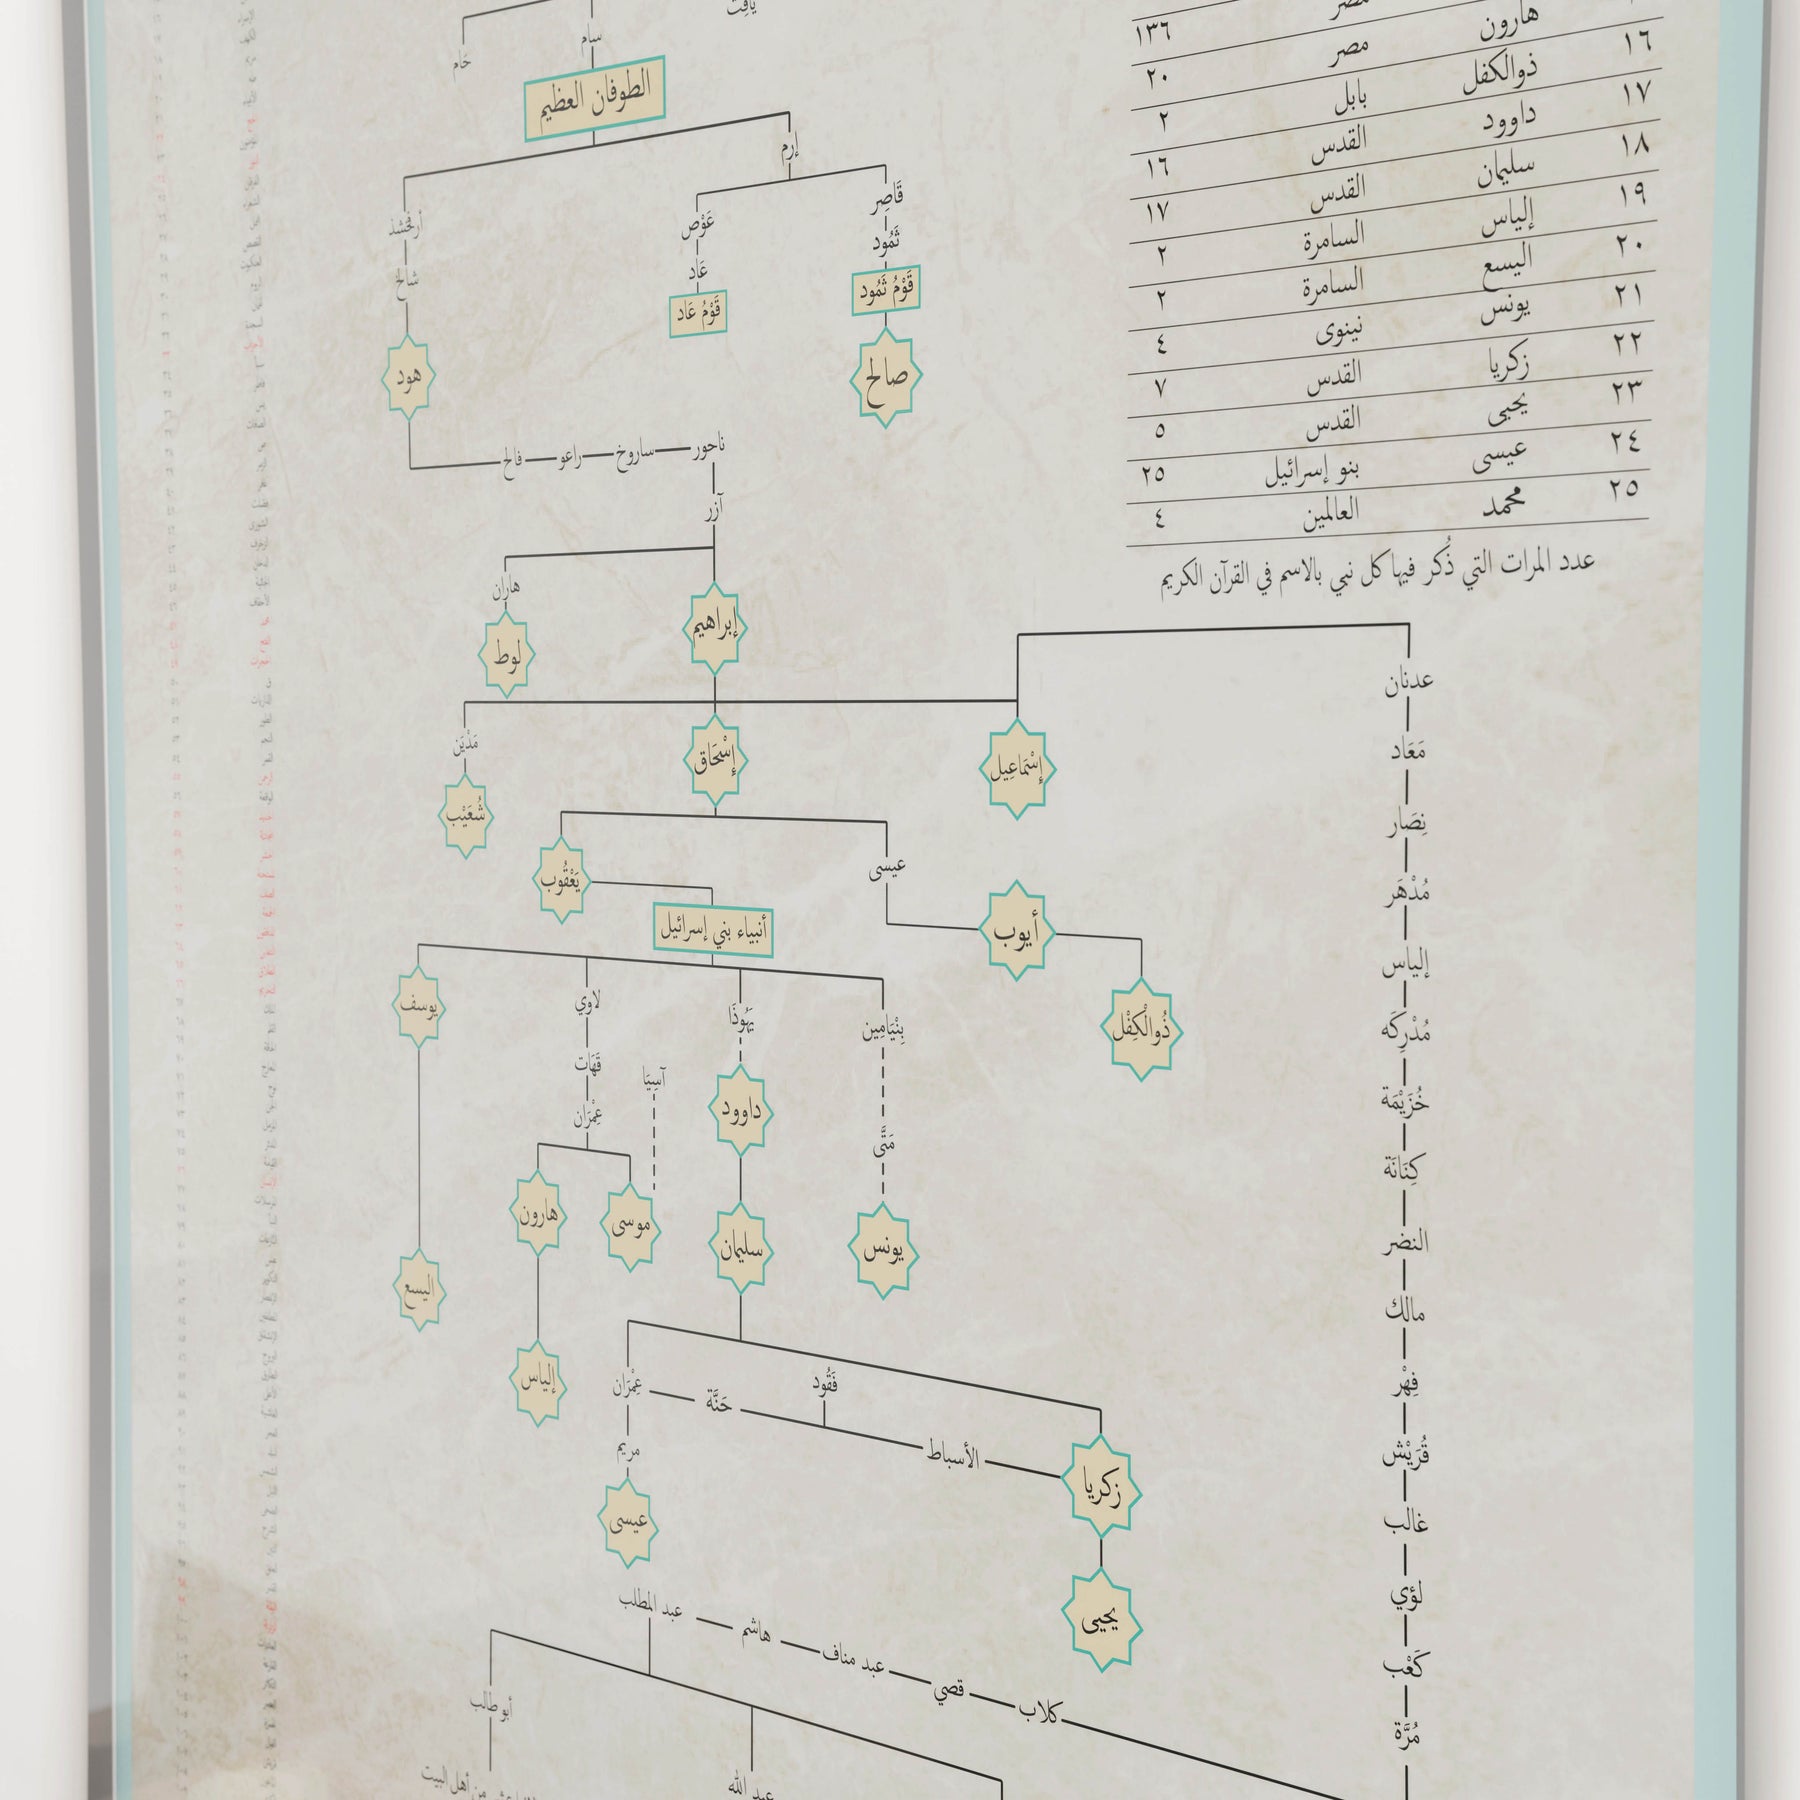 يافث
سام
حَام
الطوفان العظيم
إرم
أرفخشذ
عَوْص
قَاصِر
شالخ
عَاد
ثَمُود
قَوْمُ عَاد
قَوْمُ ثَمُود
هود
صالح
ناحور
ساروخ
راعو
فالخ
آزر
هاران
إبراهيم
لوط
مصر ١٣٦
هارون مصر ٢٠
١٦ ذوالكفل بابل ٢
١٧ داوود القدس ١٦
١٨ سليمان القدس ١٧
١٩ إلياس السامرة ٢
٢٠ اليسع السامرة ٢
٢١ يونس نينوى ٤
٢٢ زكريا القدس ٧
٢٣ يحيى القدس ٥
٢٤ عيسى بنو إسرائيل ٢٥
٢٥ محمد العالمين ٤
عدد المرات التي ذُكر فيها كل نبي بالاسم في القرآن الكريم
مَدْيَن
إِسْحَاق
إِسْمَاعِيل
شُعَيْب
يَعْقُوب
عيسى
أنبياء بني إسرائيل
أيوب
ذُوالْكِفْل
يوسف
لاوي
يَهُوذَا
بِنْيَامِين
قَهَات
آسِيَا
عِمْرَان
داوود
مَتَّى
هارون
موسى
سليمان
يونس
اليسع
إلياس
عِمْرَان
حَنَّة
فَقُود
الأسباط
زكريا
مريم
عيسى
يحيى
عدنان
مَعَاد
نِصَار
مُدْهَر
إلياس
مُدْرِكَه
خُزَيْمَة
كِنَانَة
النضر
مالك
فِهْر
قُرَيْش
غالب
لؤي
كَعْب
مُرَّة
كلاب
قصي
عبد مناف
هاشم
عبد المطلب
أبو طالب
عبد الله
من أهل البيت